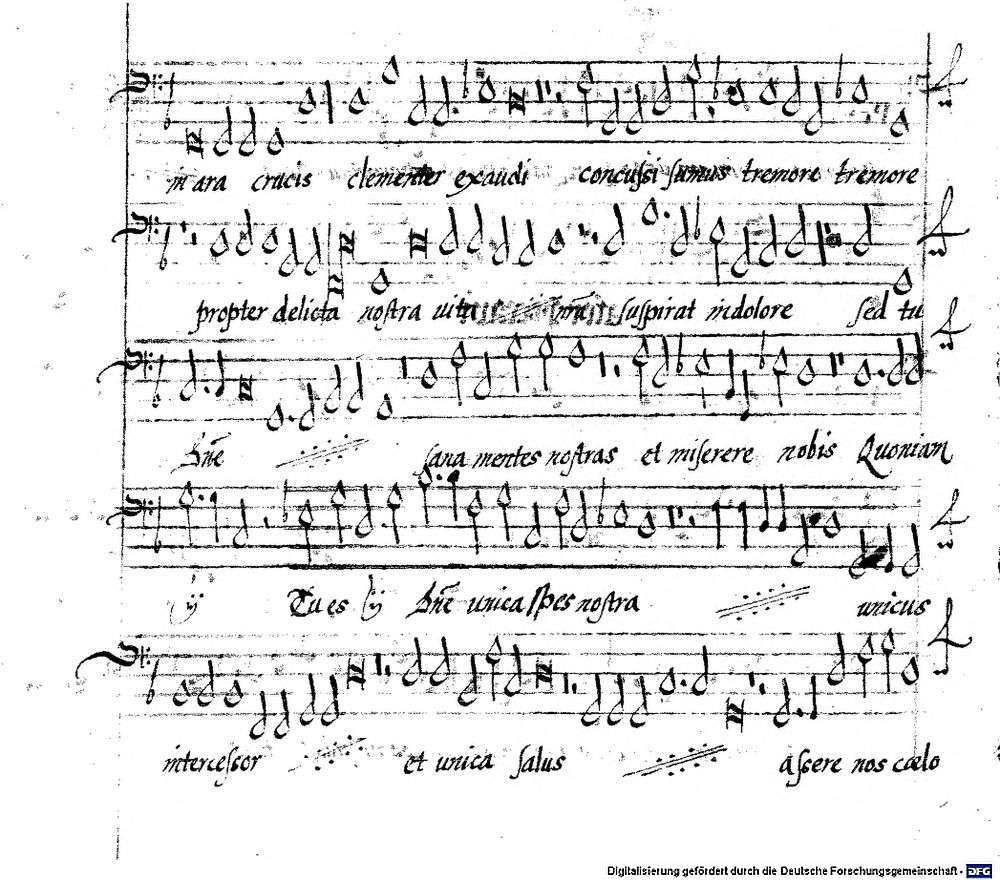 in ara crucis clementer exaudi concussi sumus tremore tremore
propter delicta nostra vita suspirat in dolore sed tu
Dñe sana mentes nostras et miserere nobis Quoniam
ij Tu es ij Dñe unica spes nostra unicus
intercessor et unica salus assere nos cælo
Digitalisierung gefördert durch die Deutsche Forschungsgemeinschaft - DFG